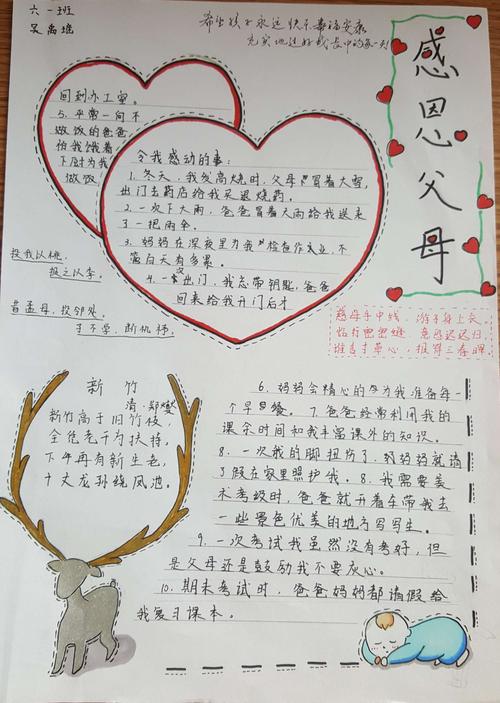 六一班
吴禹堆
希望孩子永远快乐幸福安康
充实地过好成长中的每一天!
感恩父母
回到办工室。
5. 平常一向不
做饭的爸爸
怕我饿着
下厨为我
做饭
令我感动的事:
1. 冬天,我发高烧时,父母冒着大雪,
出门去药店给我买退烧药。
2. 一次下大雨,爸爸冒着大雨给我送来
一把雨伞。
3. 妈妈在深夜里为我检查作业,不
管白天有多累。
4. 一次出门,我忘带钥匙,爸爸
回来给我开门后才
投我以桃,
投之以李。
昔孟母,投邻处。
子不学,断机杼
慈母手中线,游子身上衣,
临行密密缝,意恐迟迟归,
谁言寸草心,报得三春晖
新竹
清·郑燮
新竹高于旧竹枝,
全凭老干为扶持。
下年再有新生者,
十丈龙孙绕凤池。
6. 妈妈会精心的为我准备每一
个早餐。7. 爸爸经常利用我的
课余时间和我丰富课外的知识。
8. 一次我的脚扭伤了,妈妈就请
了假在家里照护我。8. 我需要美
术考级时,爸爸就开着车带我去
一些景色优美的地方写写生。
9. 一次考试我虽然没有考好,但
是父母还是鼓励我不要灰心。
10. 期末考试时,爸爸妈妈都请假给
我复习课本。